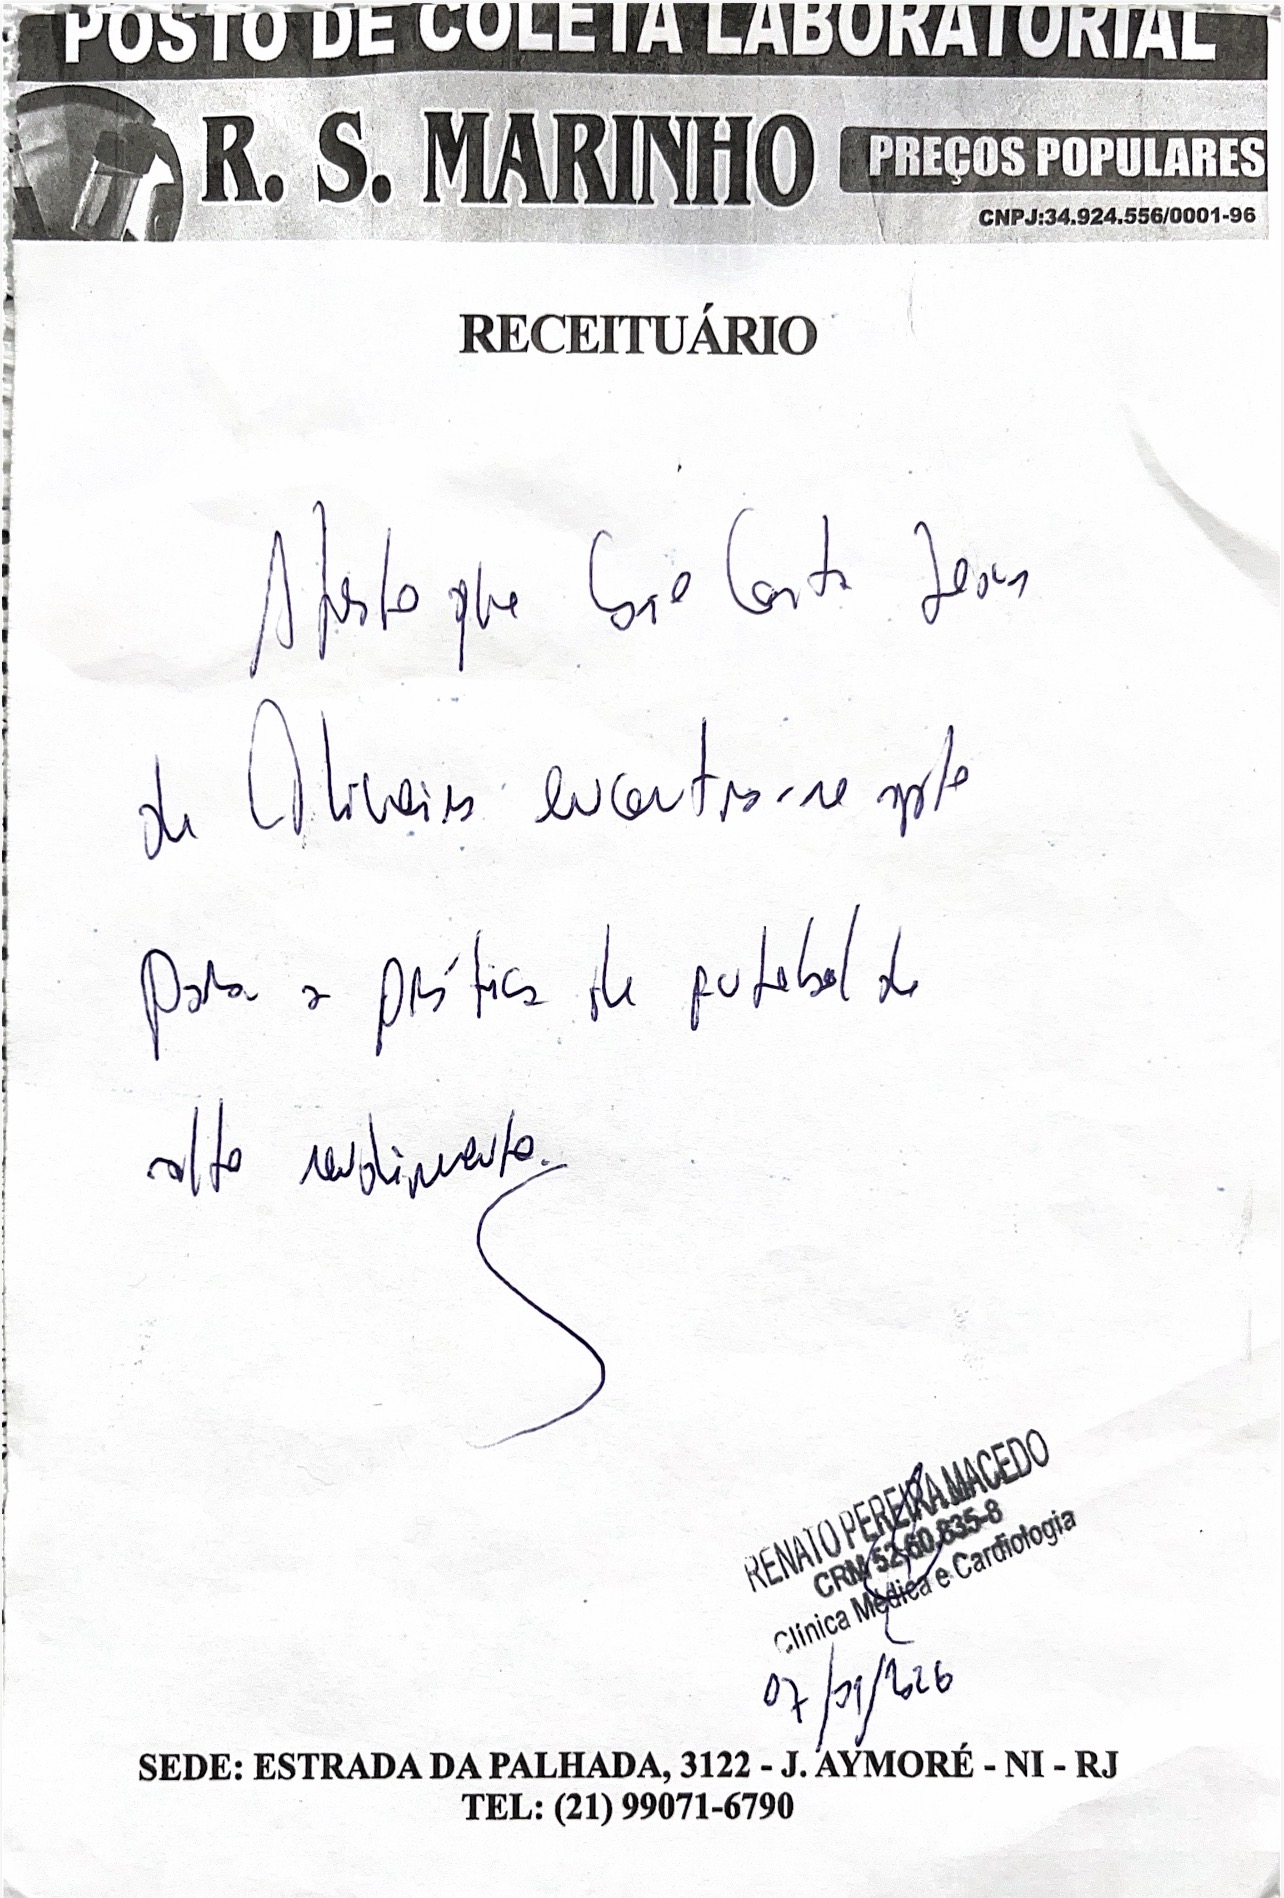 POSTO DE COLETA LABORATORIAL
R. S. MARINHO
PREÇOS POPULARES
CNPJ:34.924.556/0001-96
RECEITUÁRIO
Atesto que Costa Jesus
de Oliveira encontra-se apto
para a prática de futebol de
alto rendimento.
RENATO PEREIRA MACEDO
CRM 52.60.635-8
Clínica Médica e Cardiologia
07/01/2026
SEDE: ESTRADA DA PALHADA, 3122 - J. AYMORÉ - NI - RJ
TEL: (21) 99071-6790